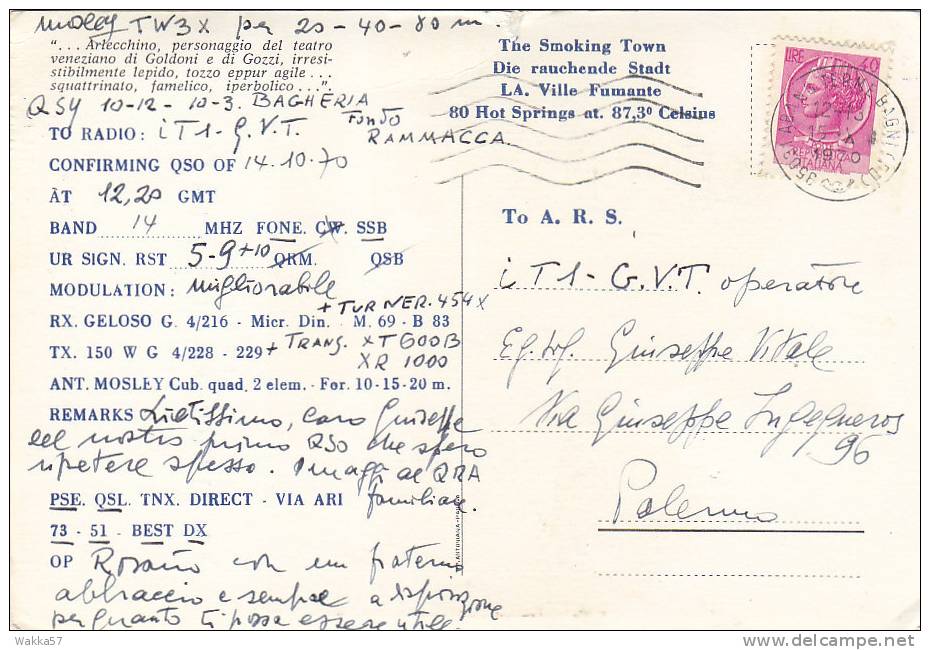 Mosley TW3X per 20 - 40 - 80 m.
"... Arlecchino, personaggio del teatro
veneziano di Goldoni e di Gozzi, irresi-
stibilmente lepido, tozzo eppur agile...
squattrinato, famelico, iperbolico...".
QSY 10-12 - 10-3. BAGHERIA
Fondo
RAMMACCA
TO RADIO: iT1-G.V.T.
CONFIRMING QSO OF 14.10.70
ÀT 12,20 GMT
BAND 14 MHZ FONE. CW. SSB
UR SIGN. RST 5-9+10 QRM. QSB
MODULATION: migliorabile
+ TURNER. 454X
RX. GELOSO G. 4/216 - Micr. Din. - M. 69 - B 83
TX. 150 W G 4/228 - 229 + TRANS. XT600B
XR 1000
ANT. MOSLEY Cub. quad. 2 elem. - For. 10-15-20 m.
REMARKS Lietissimo, caro Giuseppe
del nostro primo QSO che spero
ripetere spesso. Omaggi al QRA
familiare.
PSE. QSL. TNX. DIRECT - VIA ARI
73 - 51 - BEST DX
OP Rosario con un fraterno
abbraccio e sempre a disposizione
per quanto ti possa essere utile.
The Smoking Town
Die rauchende Stadt
LA. Ville Fumante
80 Hot Springs at. 87,3° Celsius
LIRE 40
REPUBBLICA
ITALIANA
1970
To A. R. S.
iT1-G.V.T. operatore
Eg. Sig. Giuseppe Vitale
Via Giuseppe Ingegneros
96
Palermo
Wakka57
delcampe.net